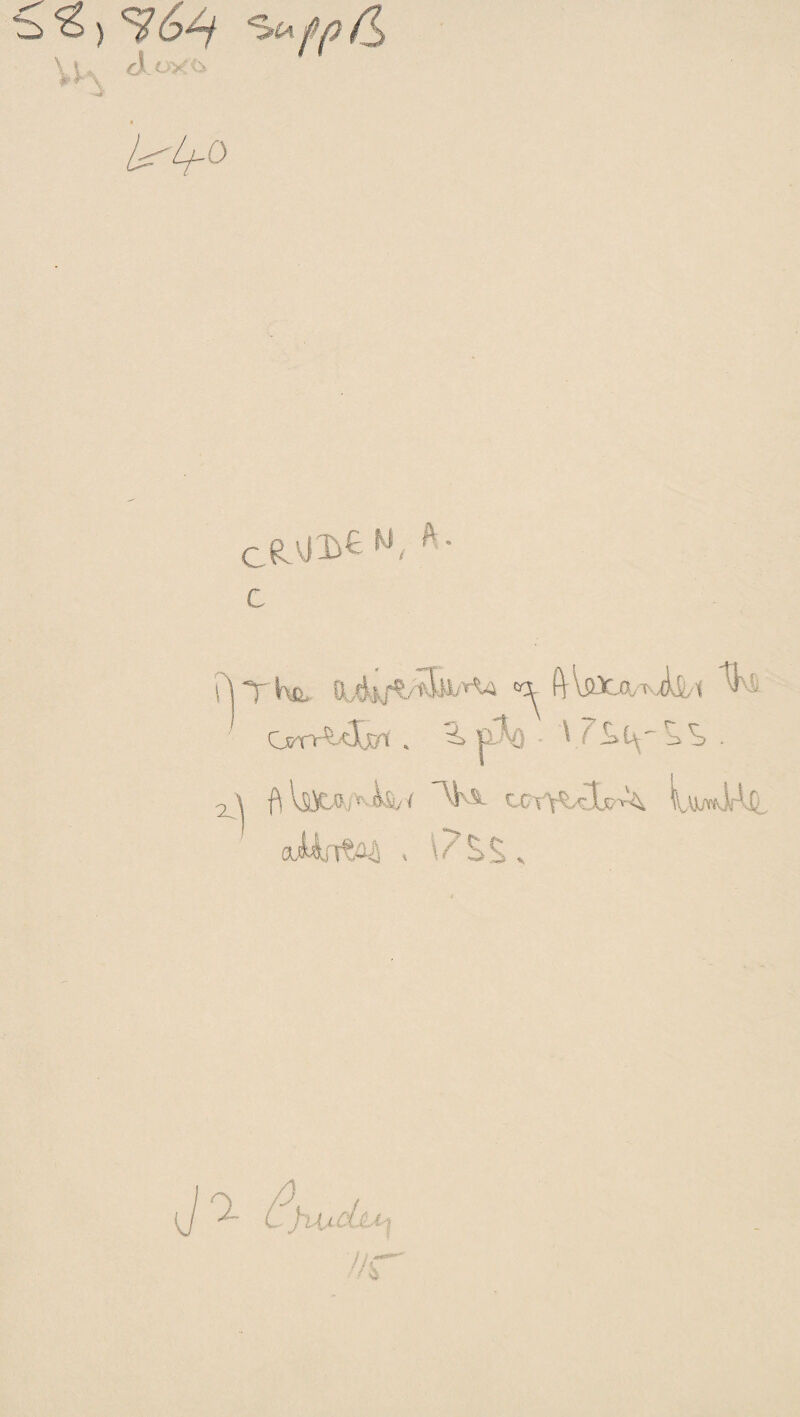 58,964 Supp B
L40
CRUDEN, A.
C
1) The adventures of Alexander the
Corrector. 3 pts. 1754-55.
2) Alexander the corrector's humble
address. 1755.
J2 Cruden